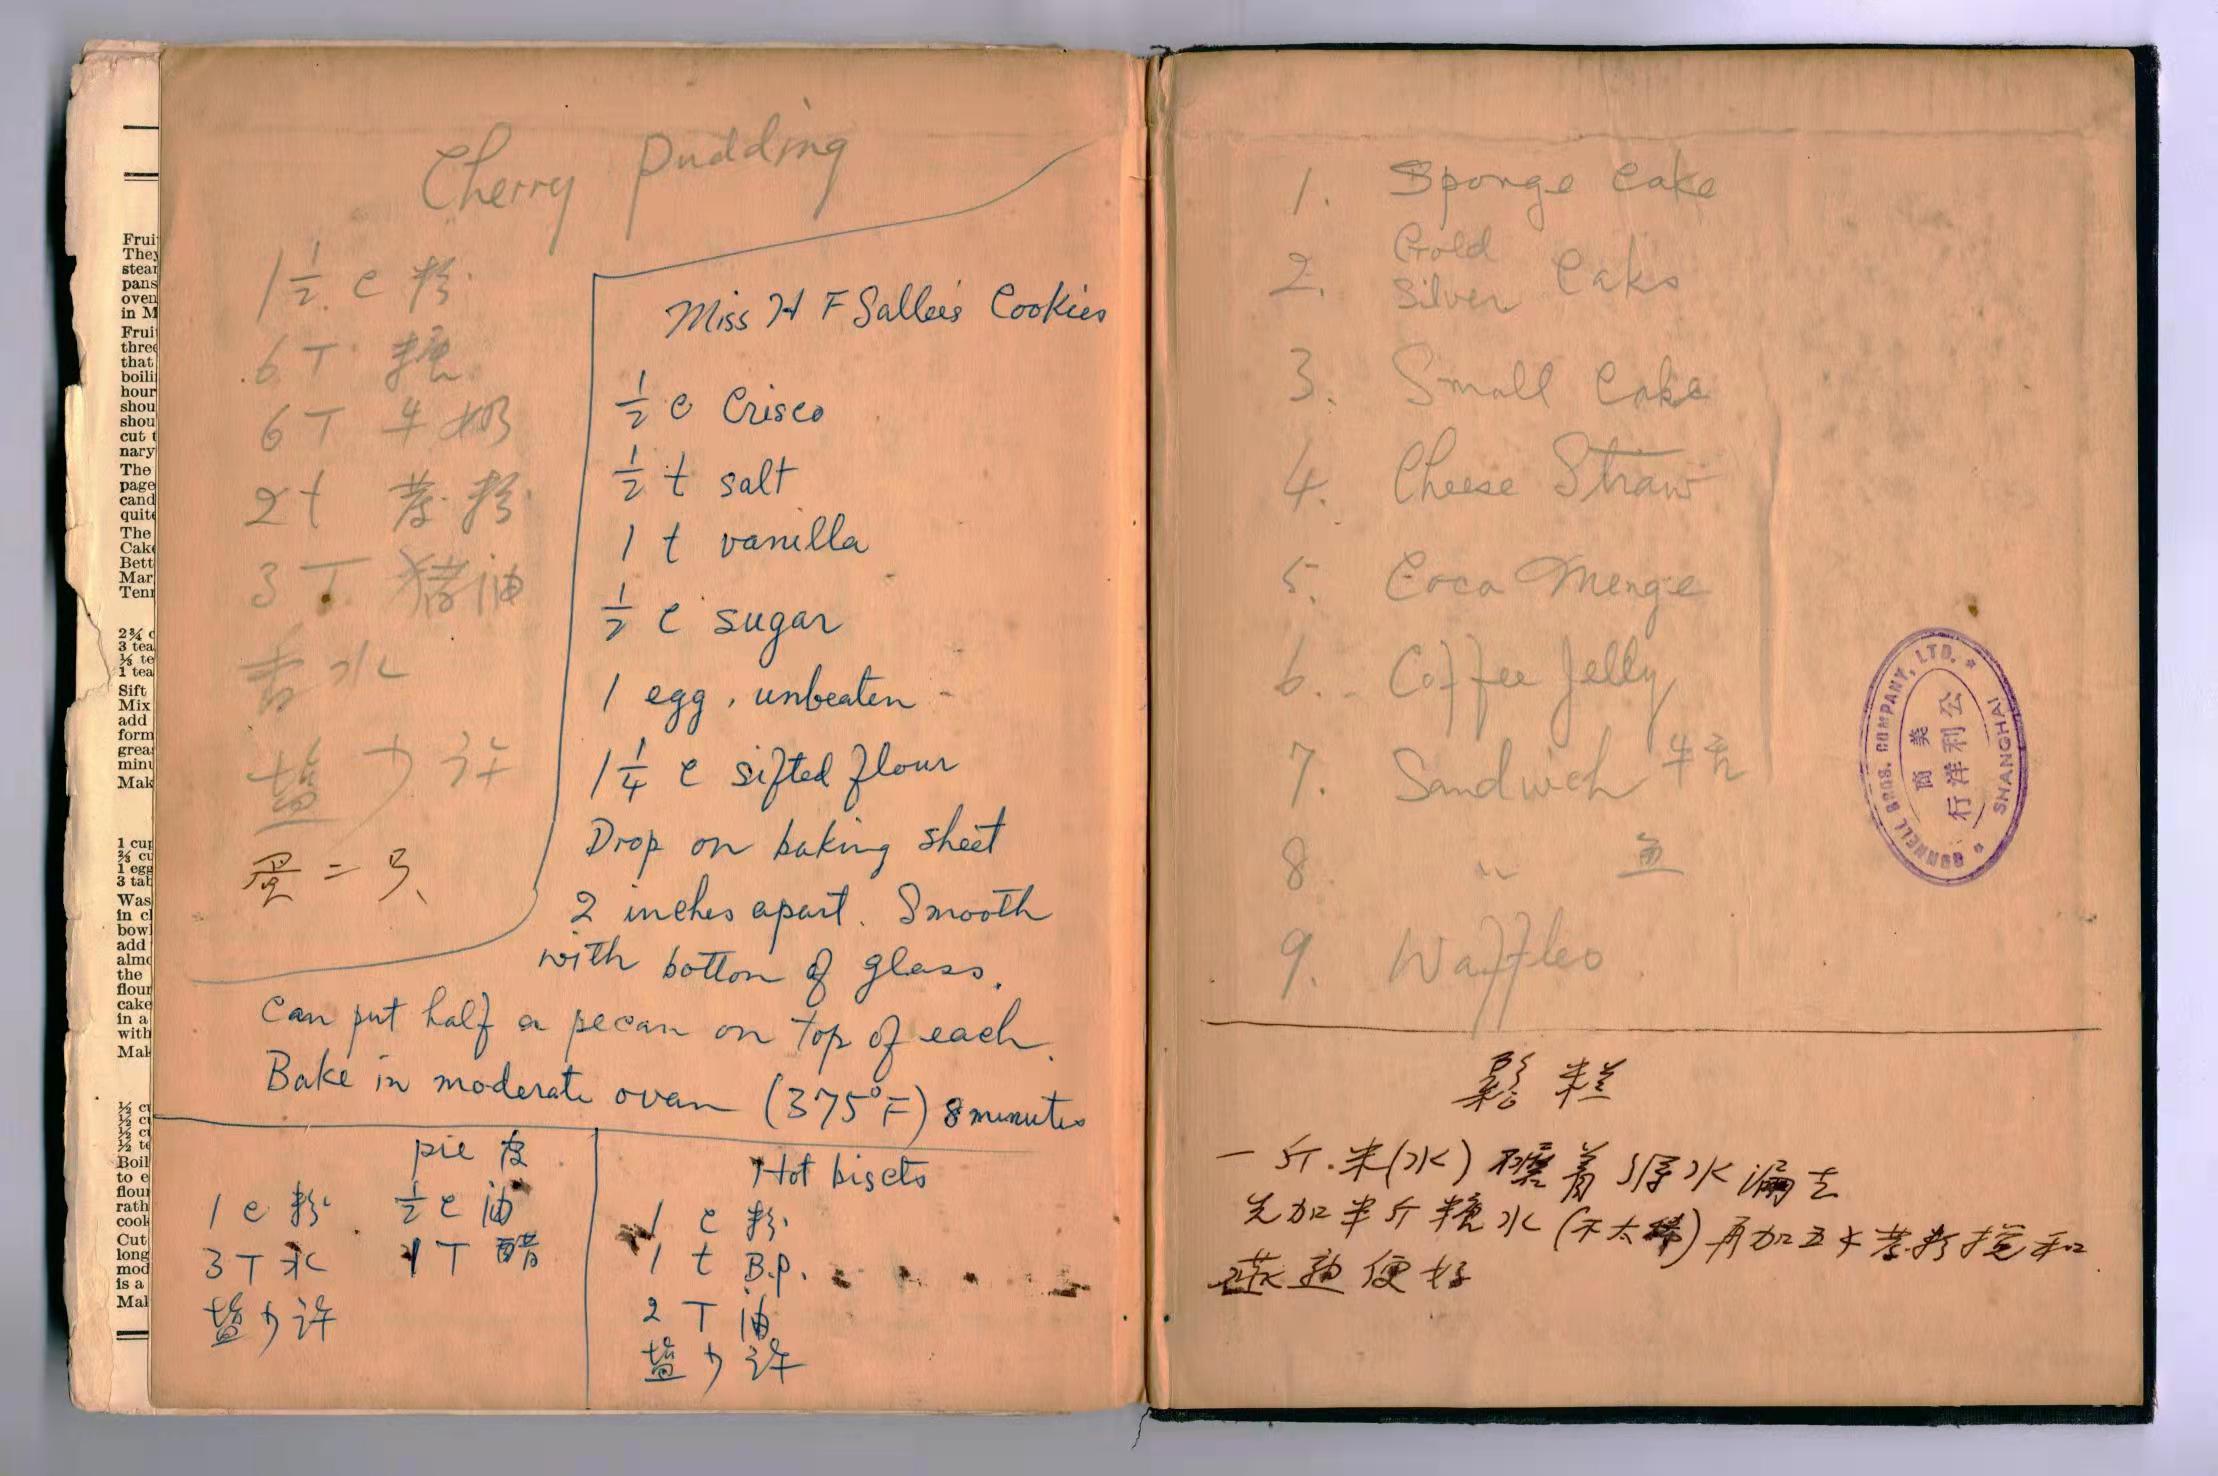 Cherry Pudding
1 1/2 c 粉
6 T 糖
6 T 牛奶
2 t 荸粉
3 T 猪油
香水
盐少许
蛋二只
Miss H F Sallee's Cookies
1/2 c Crisco
1/2 t salt
1 t vanilla
1/2 c sugar
1 egg, unbeaten
1 1/4 c sifted flour
Drop on baking sheet
2 inches apart. Smooth
with bottom of glass.
Can put half a pecan on top of each.
Bake in moderate oven (375°F) 8 minutes
pie 皮
1 c 粉 1/2 c 油
3 T 水 1 T 醋
盐少许
Hot biscts
1 c 粉
1 t B.P.
2 T 油
盐少许
Frui
They
stear
pans
oven
in M
Frui
three
that
boili
hour
shou
shou
cut t
nary
The
page
cand
quite
The
Cake
Bett
Mar
Tenn
2¾ c
3 tea
⅓ te
1 tea
Sift
Mix
add
form
grea
minu
Mak
1 cup
⅔ cu
1 egg
3 tab
Was
in cl
bowl
add
almo
the
flour
cake
in a
with
Mak
½ cu
½ cu
½ cu
½ te
Boil
to e
flour
rath
cook
Cut
long
mod
is a
Mak
1. Sponge Cake
2. Gold Silver Cake
3. Small Cake
4. Cheese Straw
5. Coca Menge
6. Coffee Jelly
7. Sandwich 牛舌
8 " 鱼
9. Waffles
CONNELL BROS. COMPANY, LTD.
SHANGHAI
美商
公利洋行
鬆糕
一斤.米(水)磨着 水漏去
先加半斤糖水(不太稀)再加五 粉搅和
蒸 便好